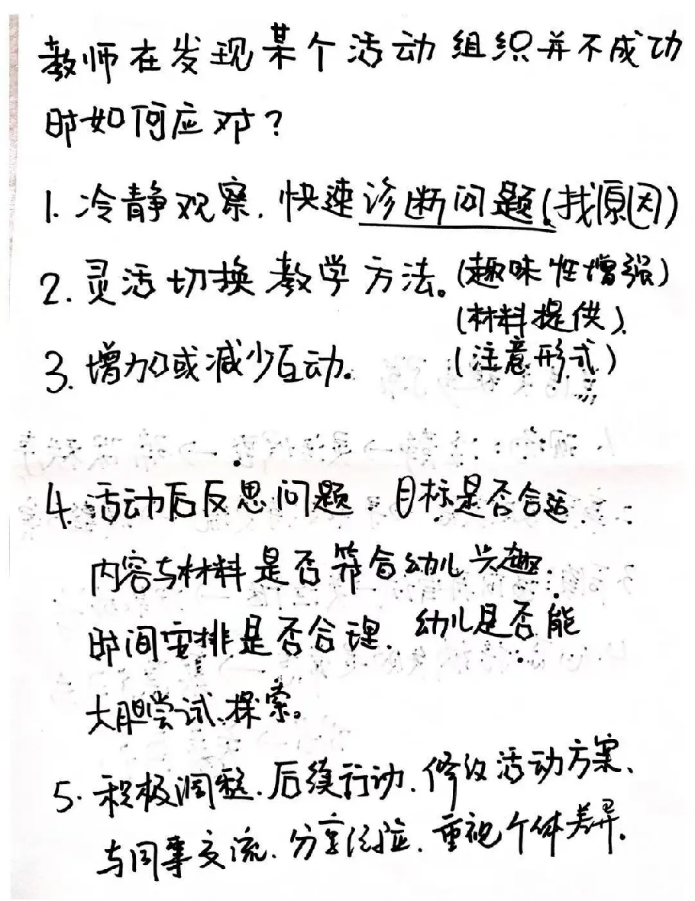 教师在发现某个活动组织并不成功
时如何应对?
1. 冷静观察.快速诊断问题(找原因)
2. 灵活切换教学方法。(趣味性增强)
(材料提供)
3. 增加或减少互动。(注意形式)
4. 活动后反思问题.目标是否合适
内容与材料是否符合幼儿兴趣.
时间安排是否合理.幼儿是否能
大胆尝试、探索。
5. 积极调整.后续行动.修改活动方案、
与同事交流.分享经验.重视个体差异.